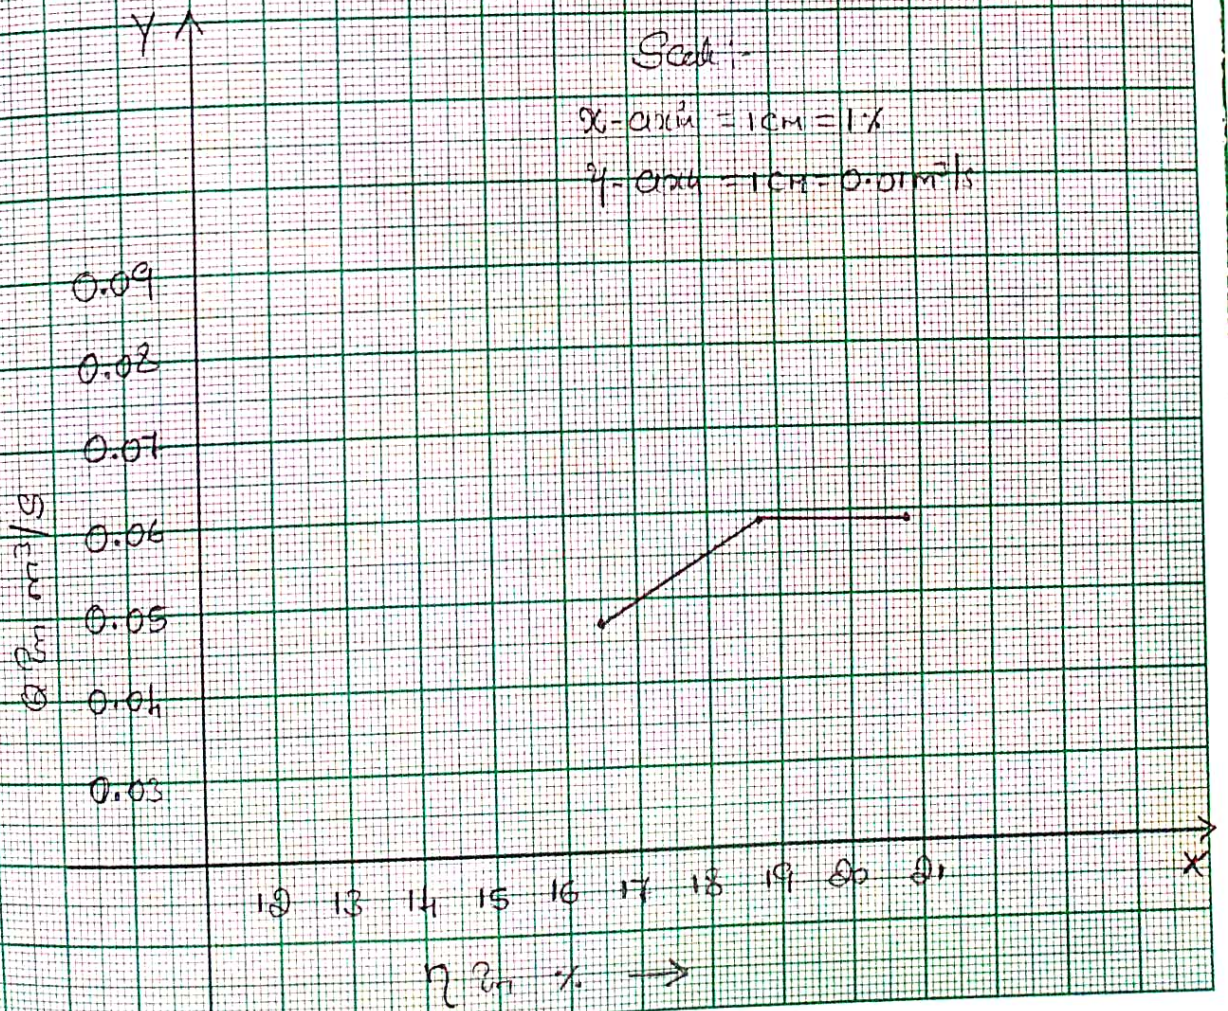 Y
Scale :-
x-axis = 1cm = 1%
y-axis = 1cm = 0.01m³/s
0.09
0.08
0.07
0.06
0.05
0.04
0.03
Q in m3/s
X
12 13 14 15 16 17 18 19 20 21
η in % →